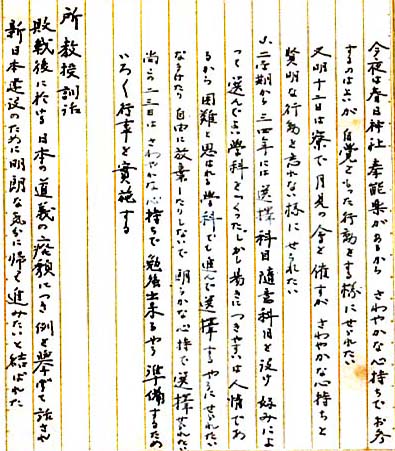 今夜は春日神社奉能楽があるから さわやかな心持でお参
するのはよいが 自覚をもった行動をする様にせられたい
又明十二日は寮で月見の会を催すが さわやかな心持ちと
賢明な行動を忘れない様にせられたい
二学期から三四年には選択科目随意科目を設け 好みによ
って選んでよい学科をつくった しかし易きにつきやすいは人情であ
るから困難と思はれる学科でも進んで選択するやうにせられたい
なまけたり自由に放棄したりしないで 明らかな心持で選択せられたい
尚この二三日は さわやかな心持ちで勉強出来るやう準備するため
いろ〱行事を実施する
所教授訓話
敗戦後に於ける日本の道義の廃頽につき例を挙げて話され
新日本建設のために明朗な気分に帰って進みたいと結ばれた